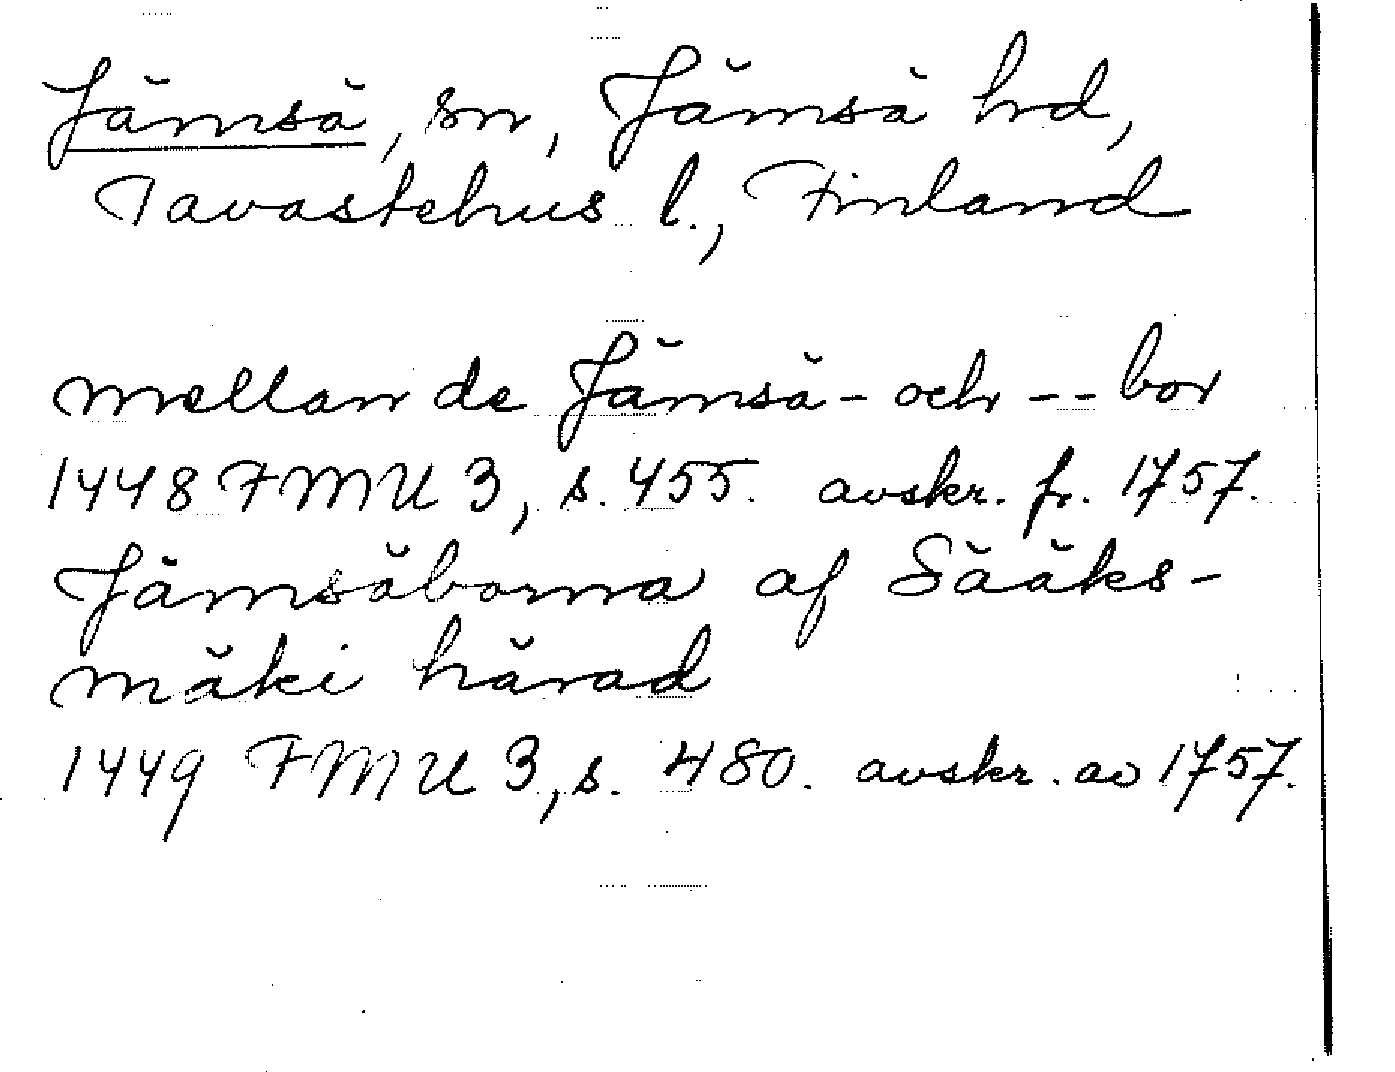 Jämsä, sn, Jämsä hd,
Tavastehus l., Finland
mellan de Jämsä- och -- bor
1448 FMU 3, s. 455. avskr. fr. 1757.
Jämsäborna af Sääks-
mäki härad
1449 FMU 3, s. 480. avskr. av 1757.